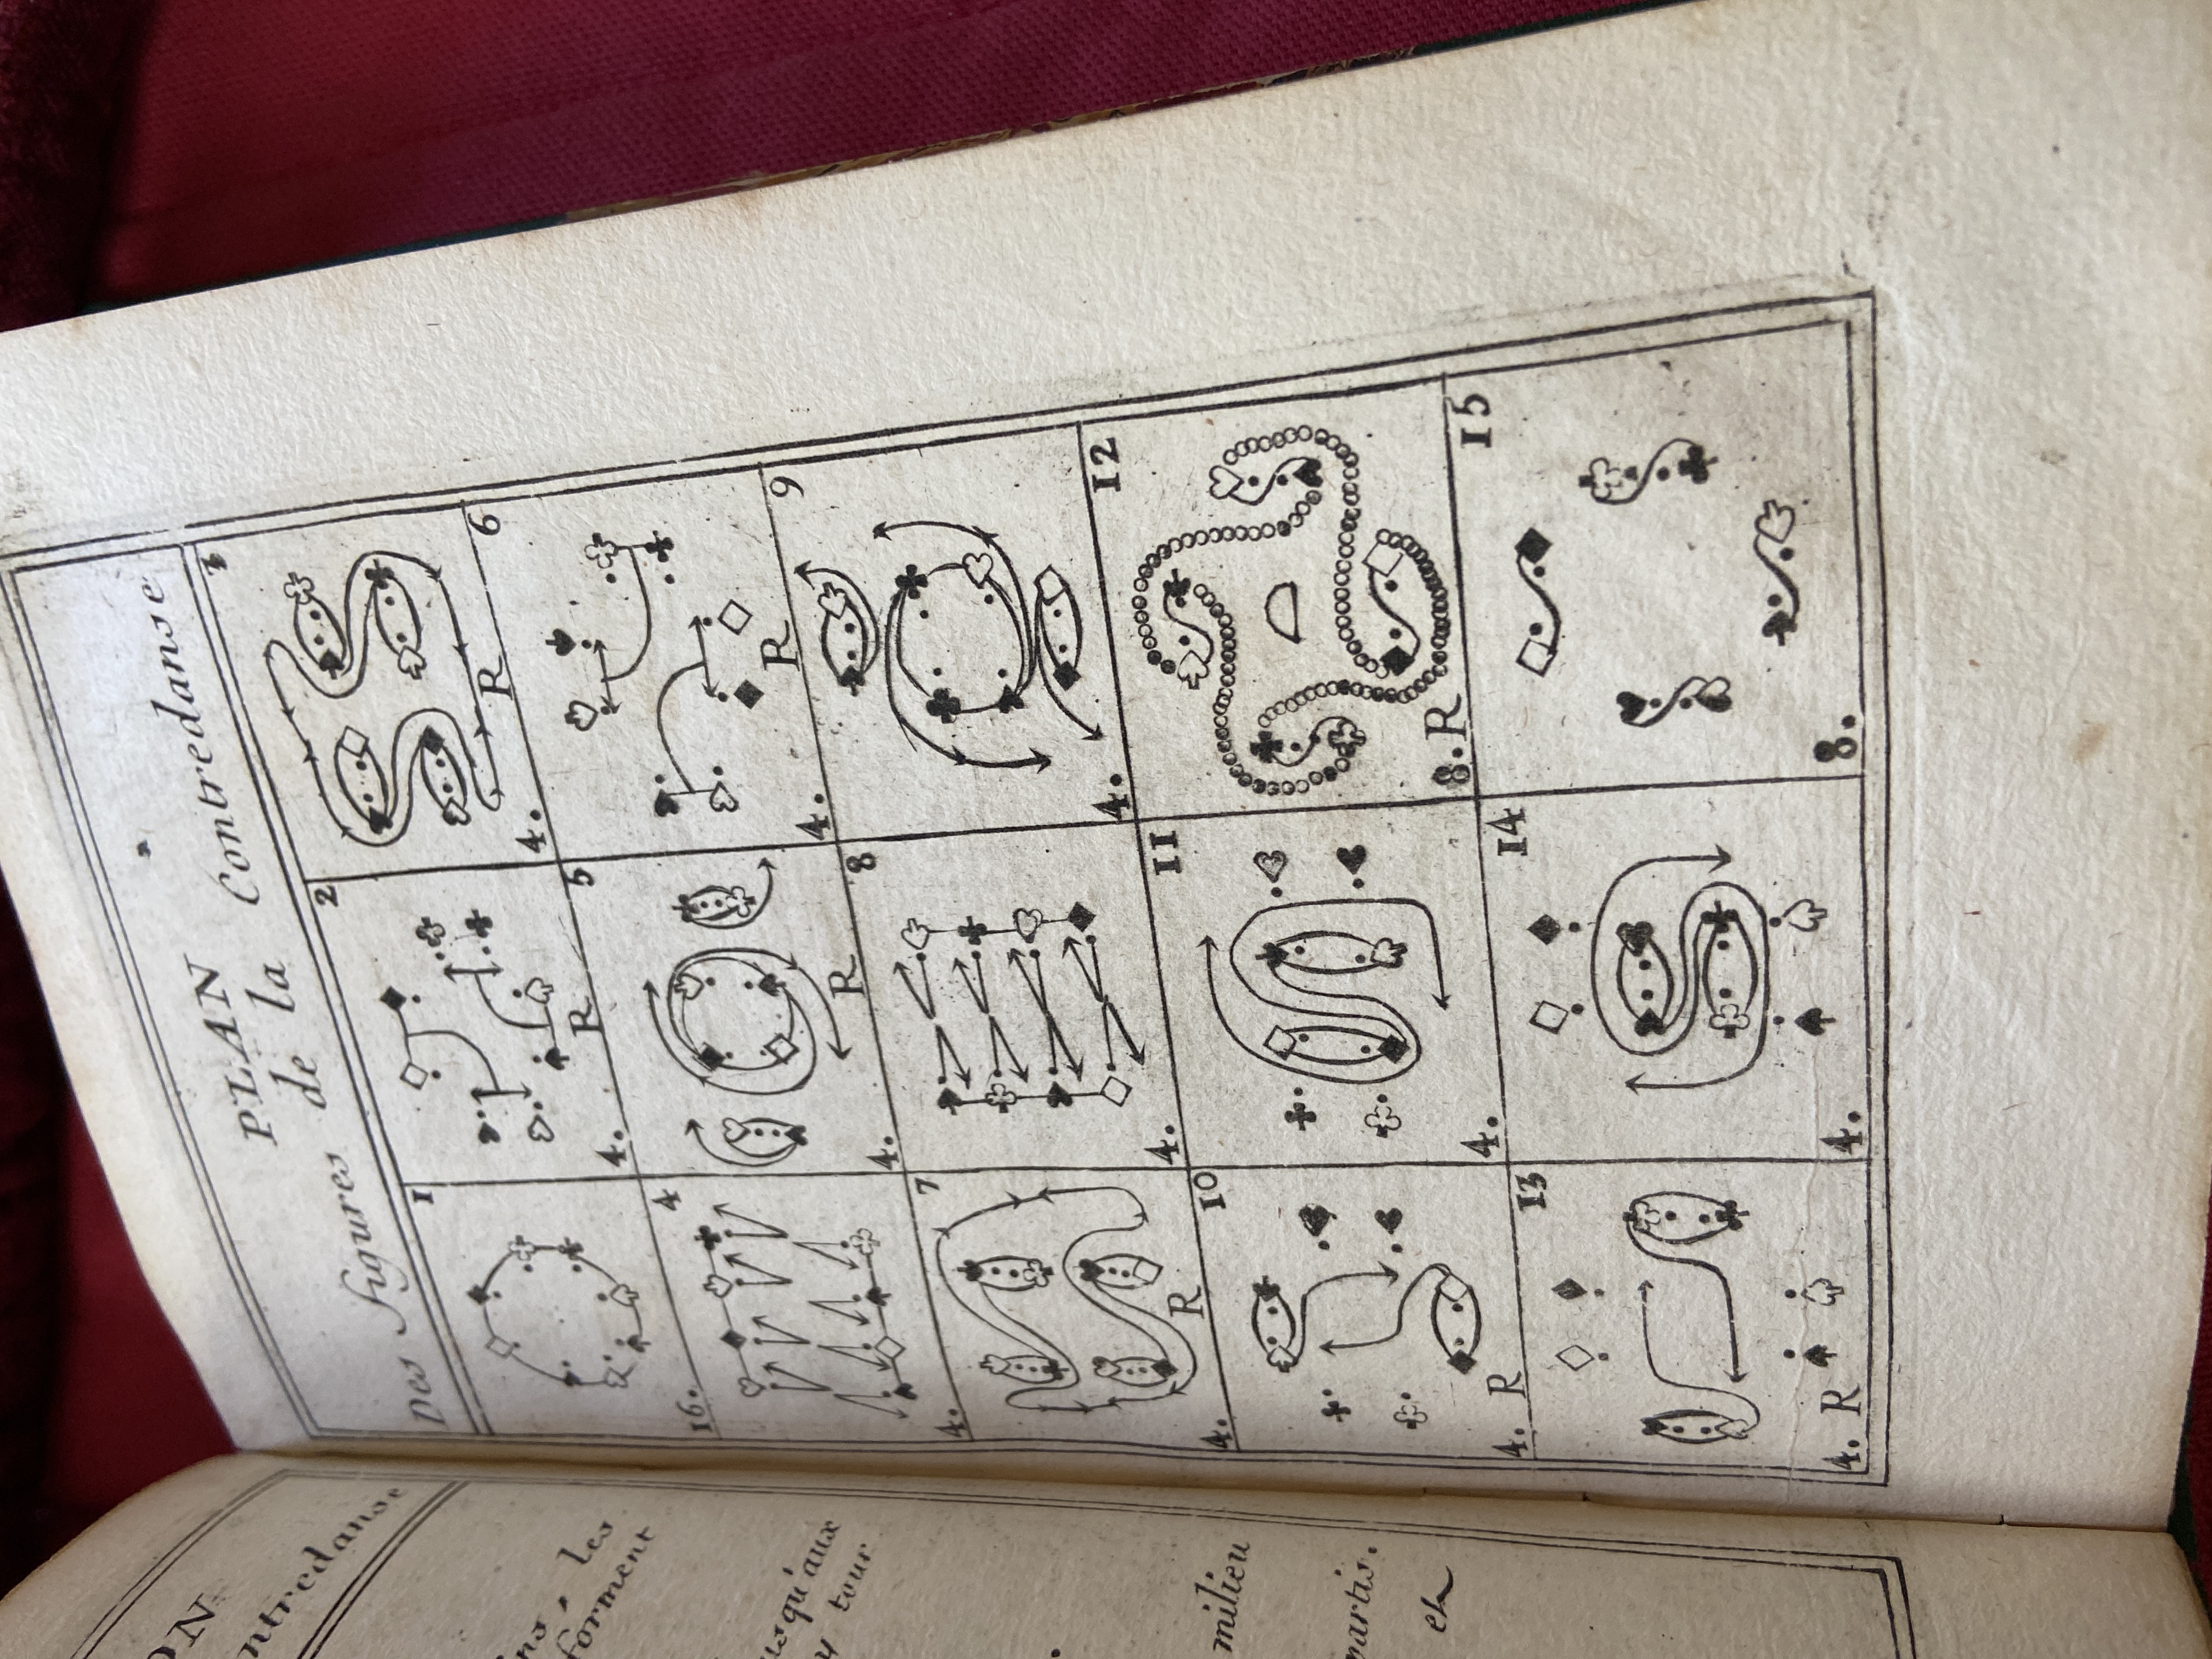 PLAN
Des figures de la Contredanse
1
2
3
16.
4.
R
4.
R
4
5
6
4.
4.
R
4.
R
7
8
9
4.
R
4.
4.
10
11
12
4.
R
4.
8.
R
13
14
15
4.
R
4.
8.
ON
ntredanse
les
forment
usqu'aux
tour
milieu
partis.
et